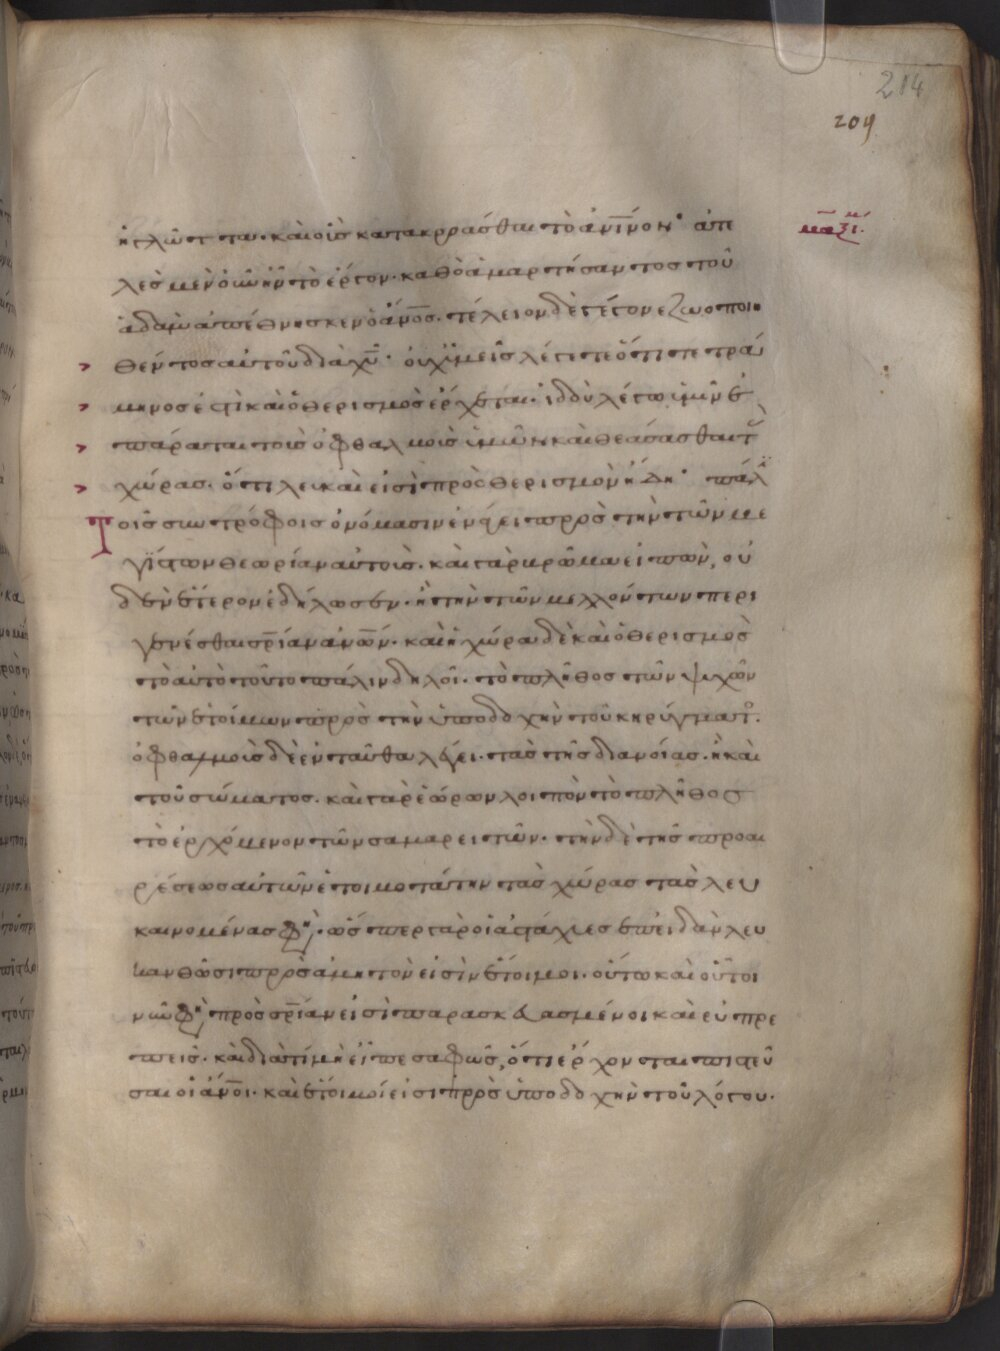 214
209
μαξι
γλῶτταν· καὶ οἷς κατακρᾶσθαι τὸ ἀνῖνον· ἀτε
λὲς μὲν οὖν ἦν τὸ ἔργον· καθὸ ἁμαρτήσαντος τοῦ
ἀδὰμ ἀπέθνησκεν ὁ ἄνος· τέλειον δὲ γέγονε ζωοποιη
θέντος αὐτοῦ διὰ χῦ· οὐχ ὑμεῖς λέγετε ὅτι τετρά
μηνος ἐστὶ καὶ ὁ θερισμὸς ἔρχεται· ἰδοὺ λέγω ὑμῖν ἐ
πάραται τοὺς ὀφθαλμοὺς ὑμῶν καὶ θεάσασθαι τ
χώρας· ὅτι λευκαὶ εἰσὶ πρὸς θερισμὸν ἤδη· πάλ
Τοῖς συντρόφοις ὀνόμασιν ἐνάγει πρὸς τὴν τῶν με
γίστων θεωρίαν αὐτοὺς· καὶ γὰρ βρῶμα εἰπὼν, οὐ
δὲν ἕτερον ἐδήλωσεν· ἢ τὴν τῶν μελλόντων περι
γενέσθαι σρίαν ἀνων· καὶ ἡ χώρα δὲ καὶ ὁ θερισμὸς
τὸ αὐτὸ τοῦτο πάλιν δηλοῖ· τὸ πλῆθος τῶν ψυχῶν
τῶν ἑτοίμων πρὸς τὴν ὑποδοχὴν τοῦ κηρύγματο·
ὀφθαλμοὺς δὲ ἐνταῦθα λέγει· τὰς τῆς διανοίας· ἢ καὶ
τοῦ σώματος· καὶ γὰρ ἑώρων λοιπὸν τὸ πλῆθος
τὸ ἐρχόμενον τῶν σαμαρειτῶν· τὴν δὲ τῆς προαι
ρέσεως αὐτῶν ἑτοιμοτάτην τὰς χώρας τὰς λευ
καινομένας φη· ὥσπερ γὰρ οἱ ἀστάχυες ἐπειδὰν λευ
κανθῶσι πρὸς ἄμητον εἰσὶν ἕτοιμοι· οὕτω καὶ οὗτοι
νῦν φη πρὸς σρίαν εἰσὶ παρασκευασμένοι καὶ εὐπρε
πεῖς· καὶ διατί μὴ εἶπε σαφῶς, ὅτι ἔρχονται πιστεῦ
σαι οἱ ἄνοι· καὶ ἕτοιμοί εἰσι πρὸς ὑποδοχὴν τοῦ λόγου·